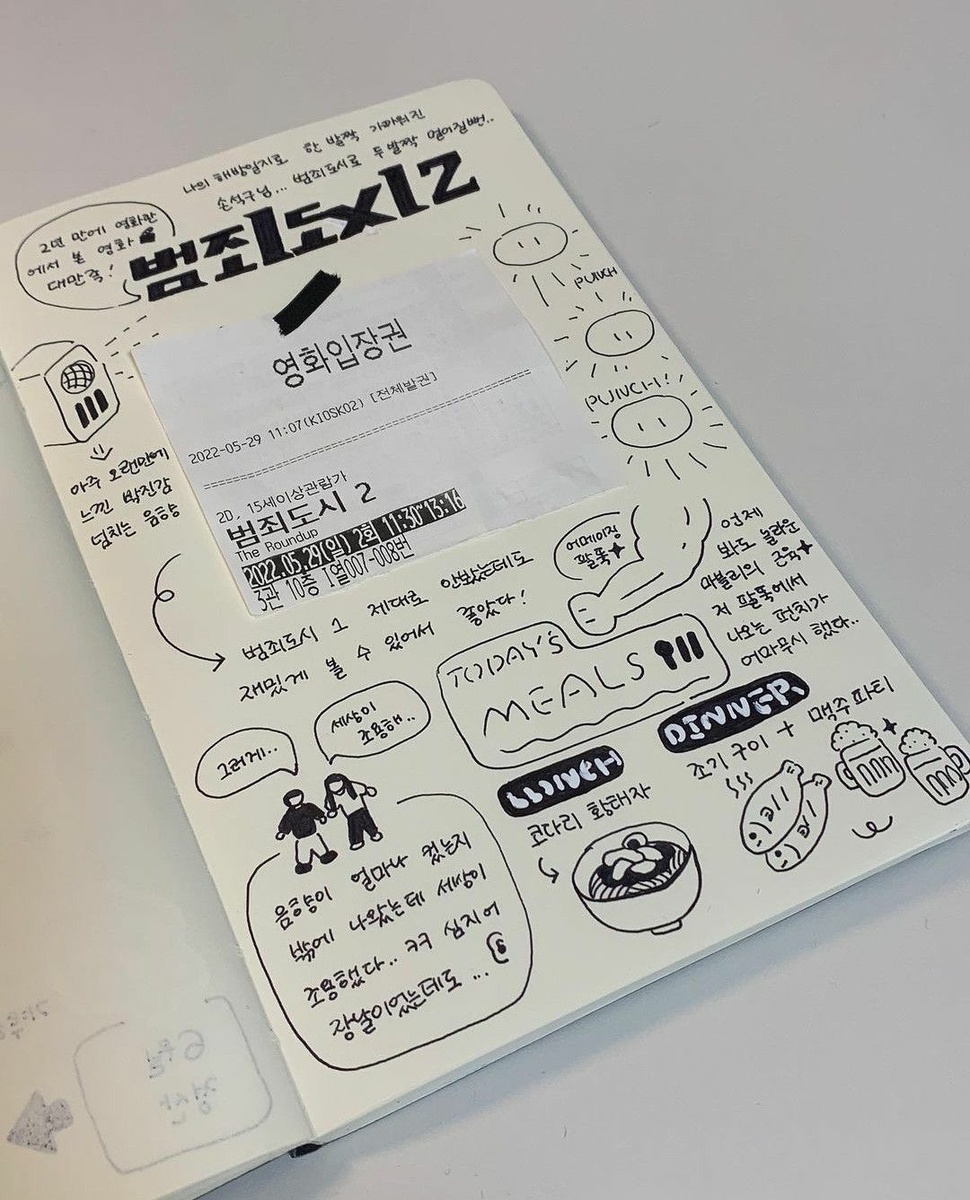 나의 해방일지로 한 발짝 가까워진
손석구님... 범죄도시로 두발짝 멀어질뻔..
2년 만에 영화관
에서 본 영화
대만족!
범죄도시2
영화입장권
2022-05-29 11:07(KIOSK02) [전체발권]
2D, 15세이상관람가
범죄도시 2
The Roundup
2022.05.29(일) 2회 11:30~13:16
3관 10층 I열007-008번
PUNCH
PUNCH!
아주 오랜만에
느낀 박진감
넘치는 음향
범죄도시 1 제대로 안봤는데도
재밌게 볼 수 있어서 좋았다!
어메이징
팔뚝
언제
봐도 놀라운
마블리의 근육
저 팔뚝에서
나오는 펀치가
어마무시 했다..
그러게..
세상이
조용해..
음향이 얼마나 컸는지
밖에 나왔는데 세상이
조용했다.. ㅋㅋ 심지어
장날이었는데도...
TODAY'S
MEALS
LUNCH
코다리 황태자
DINNER
조기구이 + 맥주파티
6월
정산